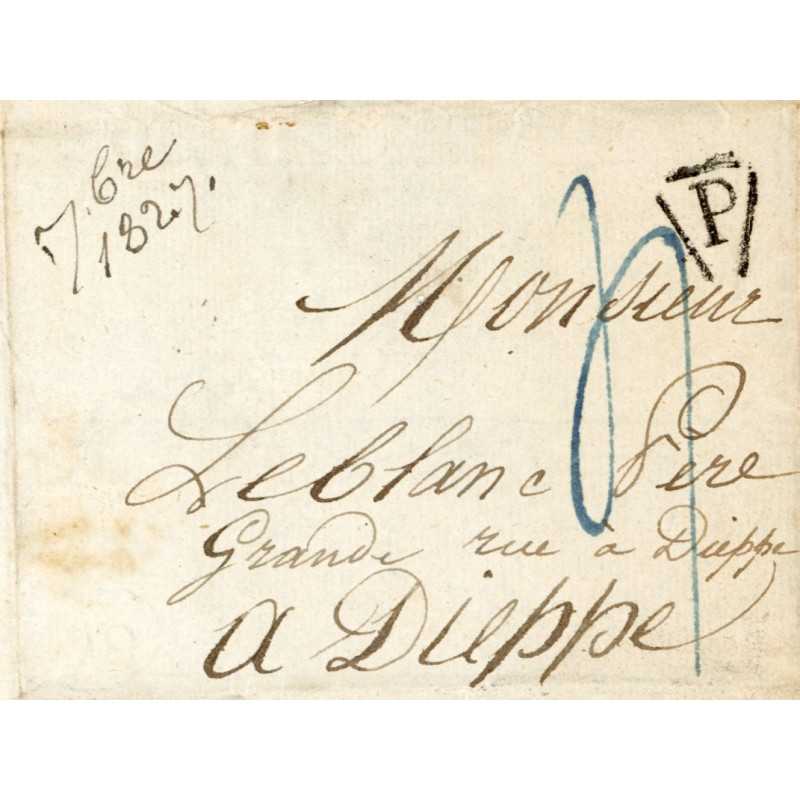 7.bre
1827.
P
Monsieur
Leblanc Père
Grande rue à Dieppe
A Dieppe